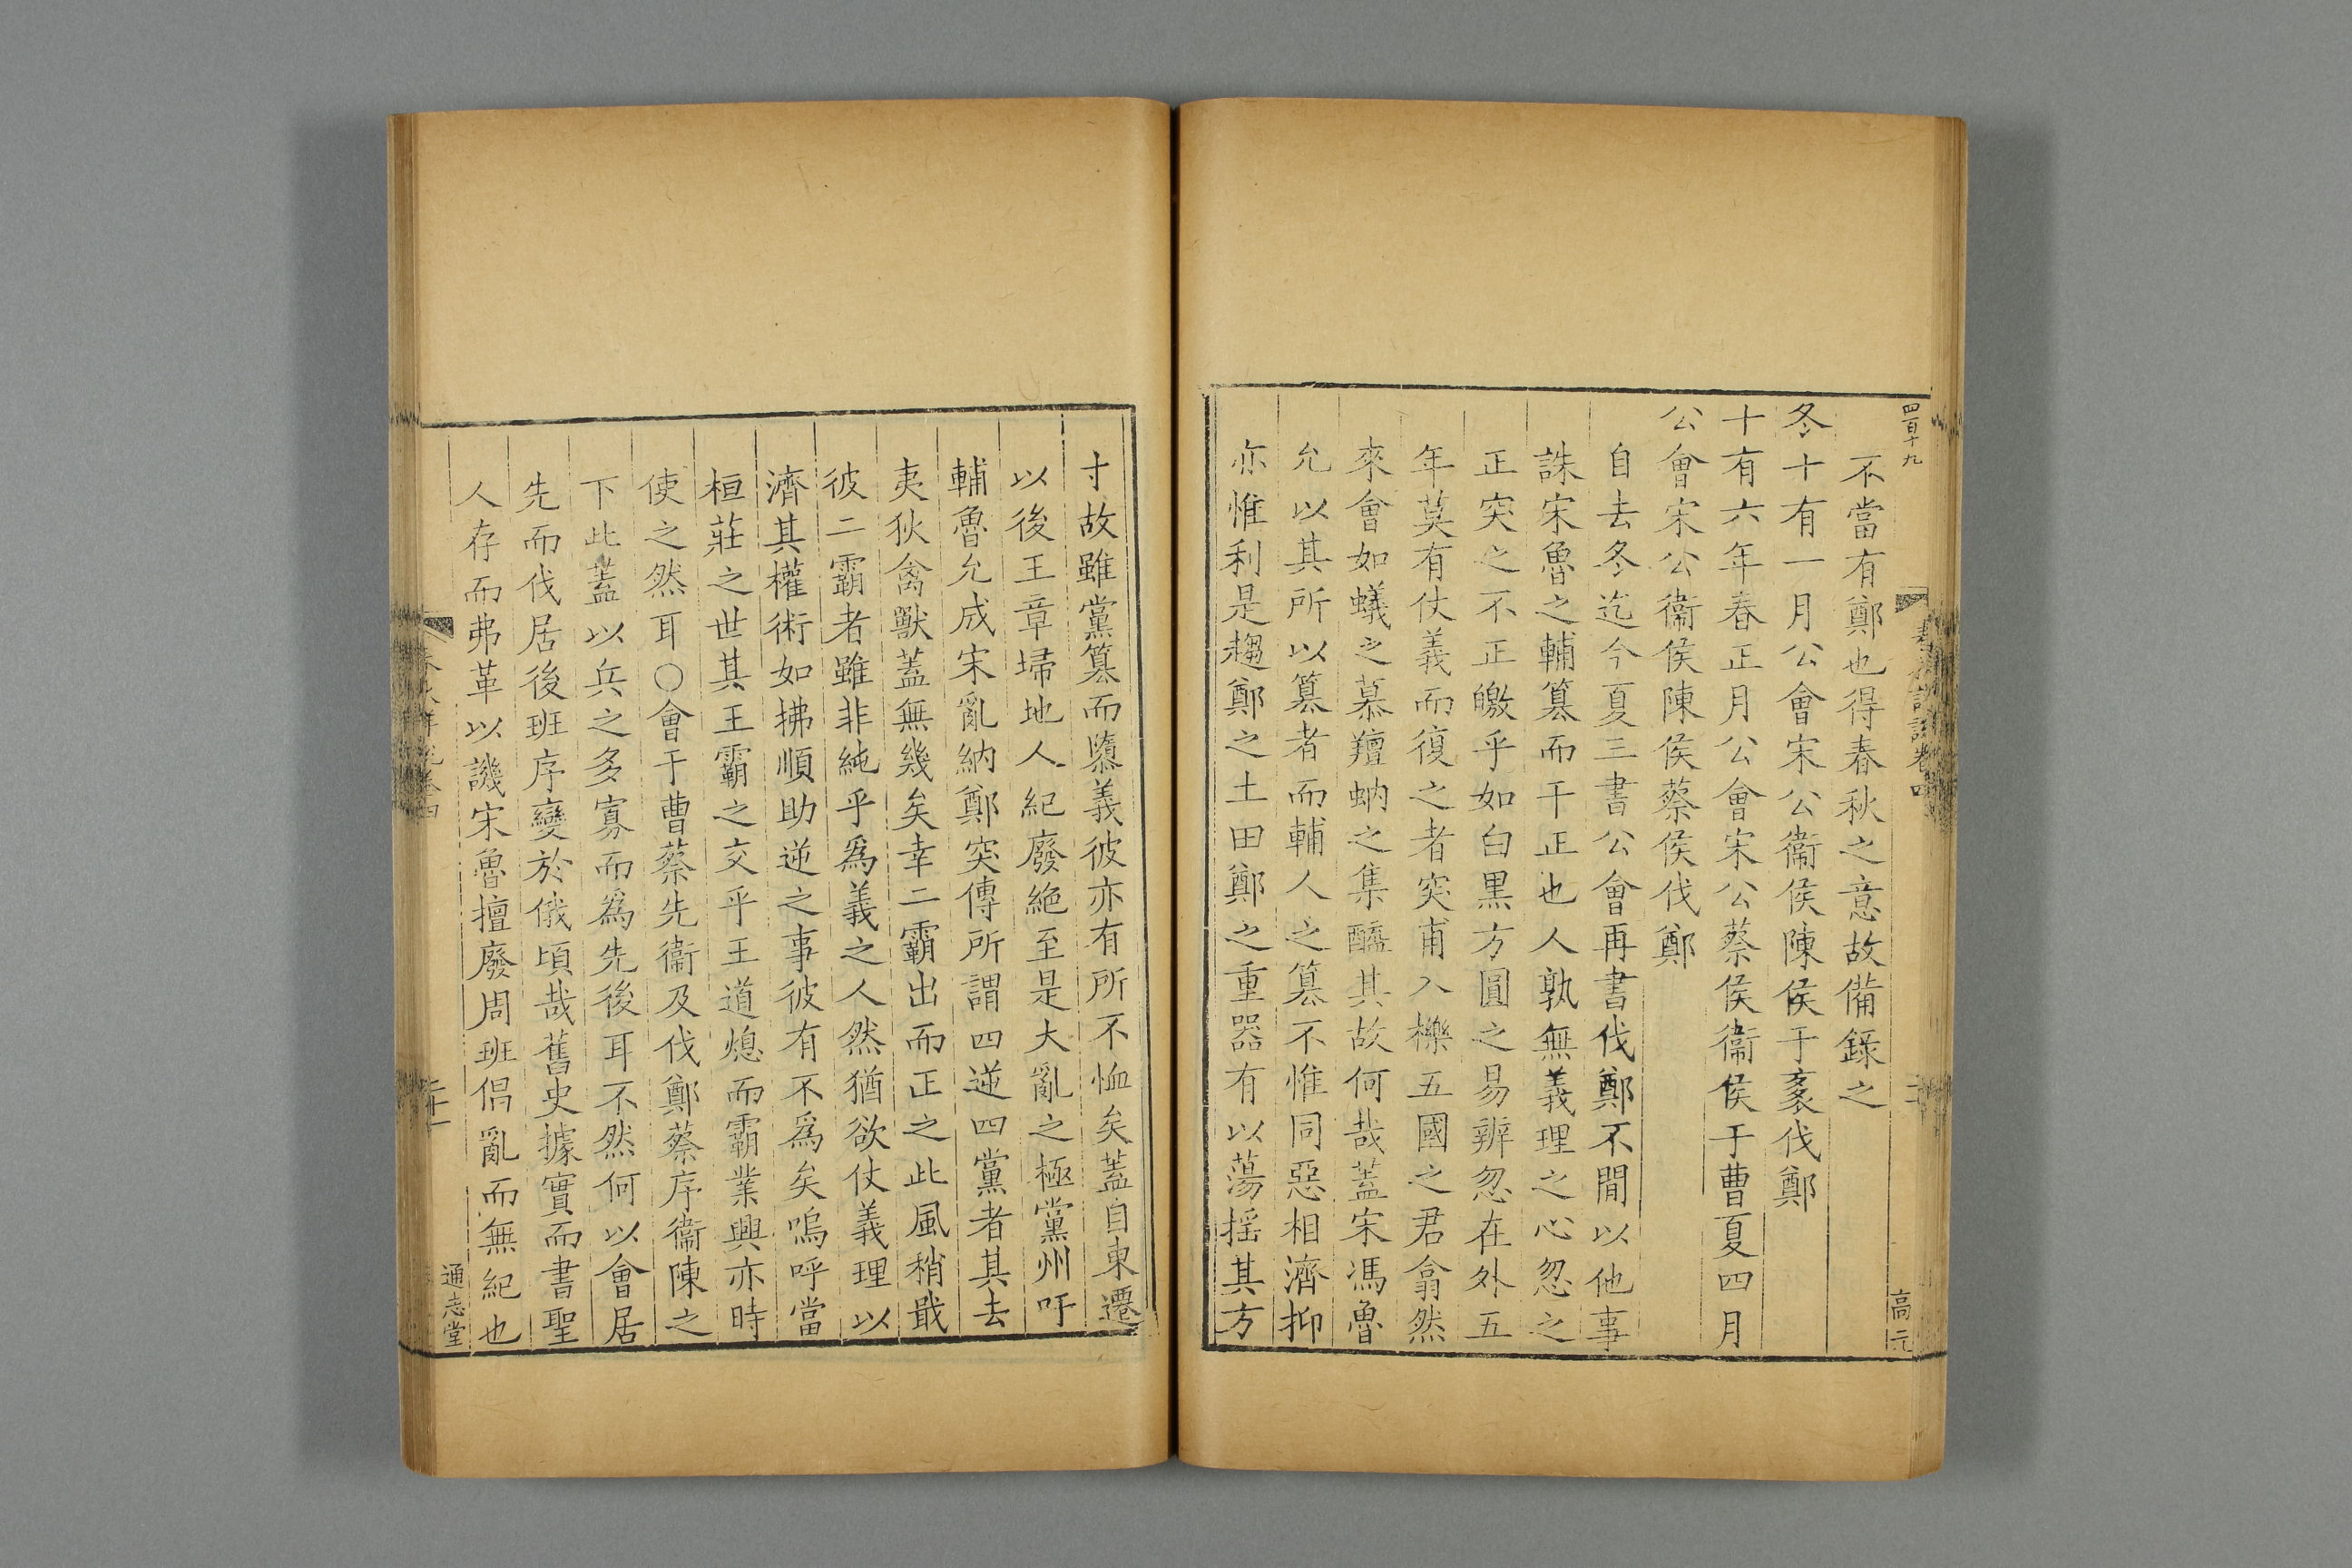 四百十九
不當有鄭也得春秋之意故備錄之
冬十有一月公會宋公衞侯陳侯于袲伐鄭
十有六年春正月公會宋公蔡侯衞侯于曹夏四月
公會宋公衞侯陳侯蔡侯伐鄭
自去冬迄今夏三書公會再書伐鄭不閒以他事
誅宋魯之輔篡而干正也人孰無義理之心忽之
正突之不正皦乎如白黑方圓之易辨忽在外五
年莫有仗義而復之者突甫入櫟五國之君翕然
來會如蟻之慕羶蚋之集醯其故何哉蓋宋馮魯
允以其所以篡者而輔人之篡不惟同惡相濟抑
亦惟利是趨鄭之土田鄭之重器有以蕩搖其方
高元
寸故雖黨篡而隳義彼亦有所不恤矣蓋自東遷
以後王章埽地人紀廢絶至是大亂之極黨州吁
輔魯允成宋亂納鄭突傳所謂四逆四黨者其去
夷狄禽獸蓋無幾矣幸二霸出而正之此風稍戢
彼二霸者雖非純乎爲義之人然猶欲仗義理以
濟其權術如拂順助逆之事彼有不爲矣嗚呼當
桓莊之世其王霸之交乎王道熄而霸業興亦時
使之然耳○會于曹蔡先衞及伐鄭蔡序衞陳之
下此蓋以兵之多寡而爲先後耳不然何以會居
先而伐居後班序變於俄頃哉舊史據實而書聖
人存而弗革以譏宋魯擅廢周班倡亂而無紀也
通志堂